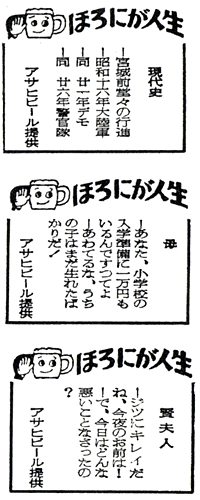 ほろにが人生
現代史
―宮城前堂々の行進
―昭和十六年大陸軍
―同 廿一年デモ
―同 廿六年警官隊
アサヒビール提供
ほろにが人生
母
―あなた、小学校の
入学準備に一万円も
いるんですってよ
―あわてるな、うち
の子はまだ生れたば
かりだ！
アサヒビール提供
ほろにが人生
賢夫人
―ジツにキレイだ
ね、今夜のお前は！
―で、今日はどんな
悪いことなさったの
？
アサヒビール提供